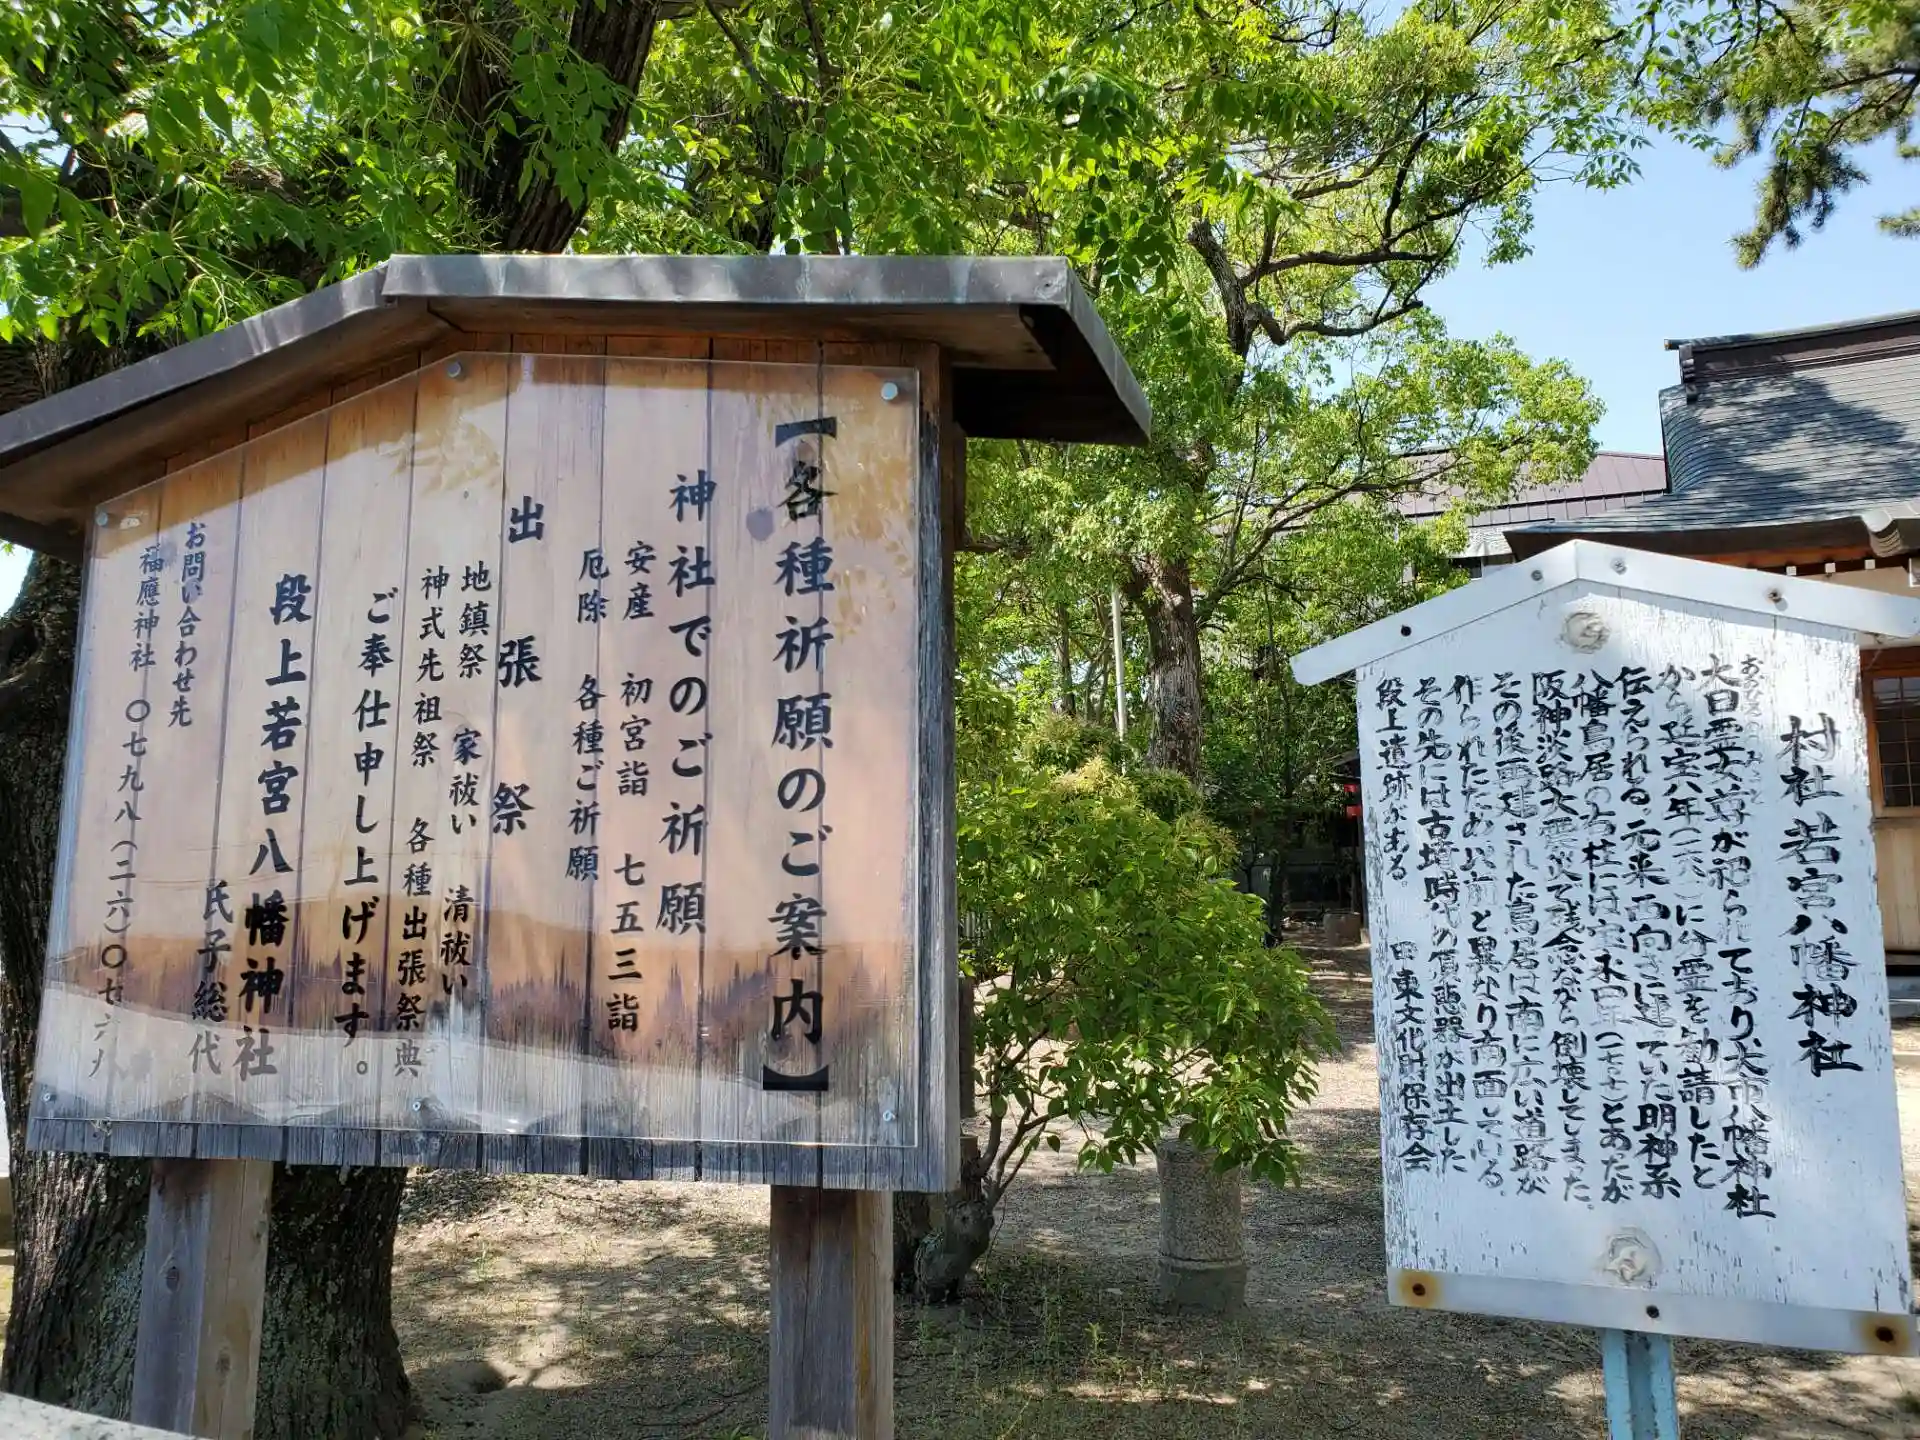 【各種祈願のご案内】
神社でのご祈願
安産 初宮詣 七五三詣
厄除 各種ご祈願
出張祭
地鎮祭 家祓い 清祓い
神式先祖祭 各種出張祭典
ご奉仕申し上げます。
段上若宮八幡神社
氏子総代
お問い合わせ先
福應神社 〇七九八(二六)〇七六八
村社 若宮八幡神社
大日霊女尊が祀られており、大市八幡神社
から延宝八年(一六八〇)に分霊を勧請したと
伝えられる。元来西向きに建っていた明神系
八幡鳥居の右柱には宝永四年(一七〇七)とあったが
阪神淡路大震災で残念ながら倒壊してしまった。
その後再建された鳥居は南に広い道路が
作られたため以前と異なり南面している。
その先には古墳時代の須恵器が出土した
段上遺跡がある。 甲東文化財保存会